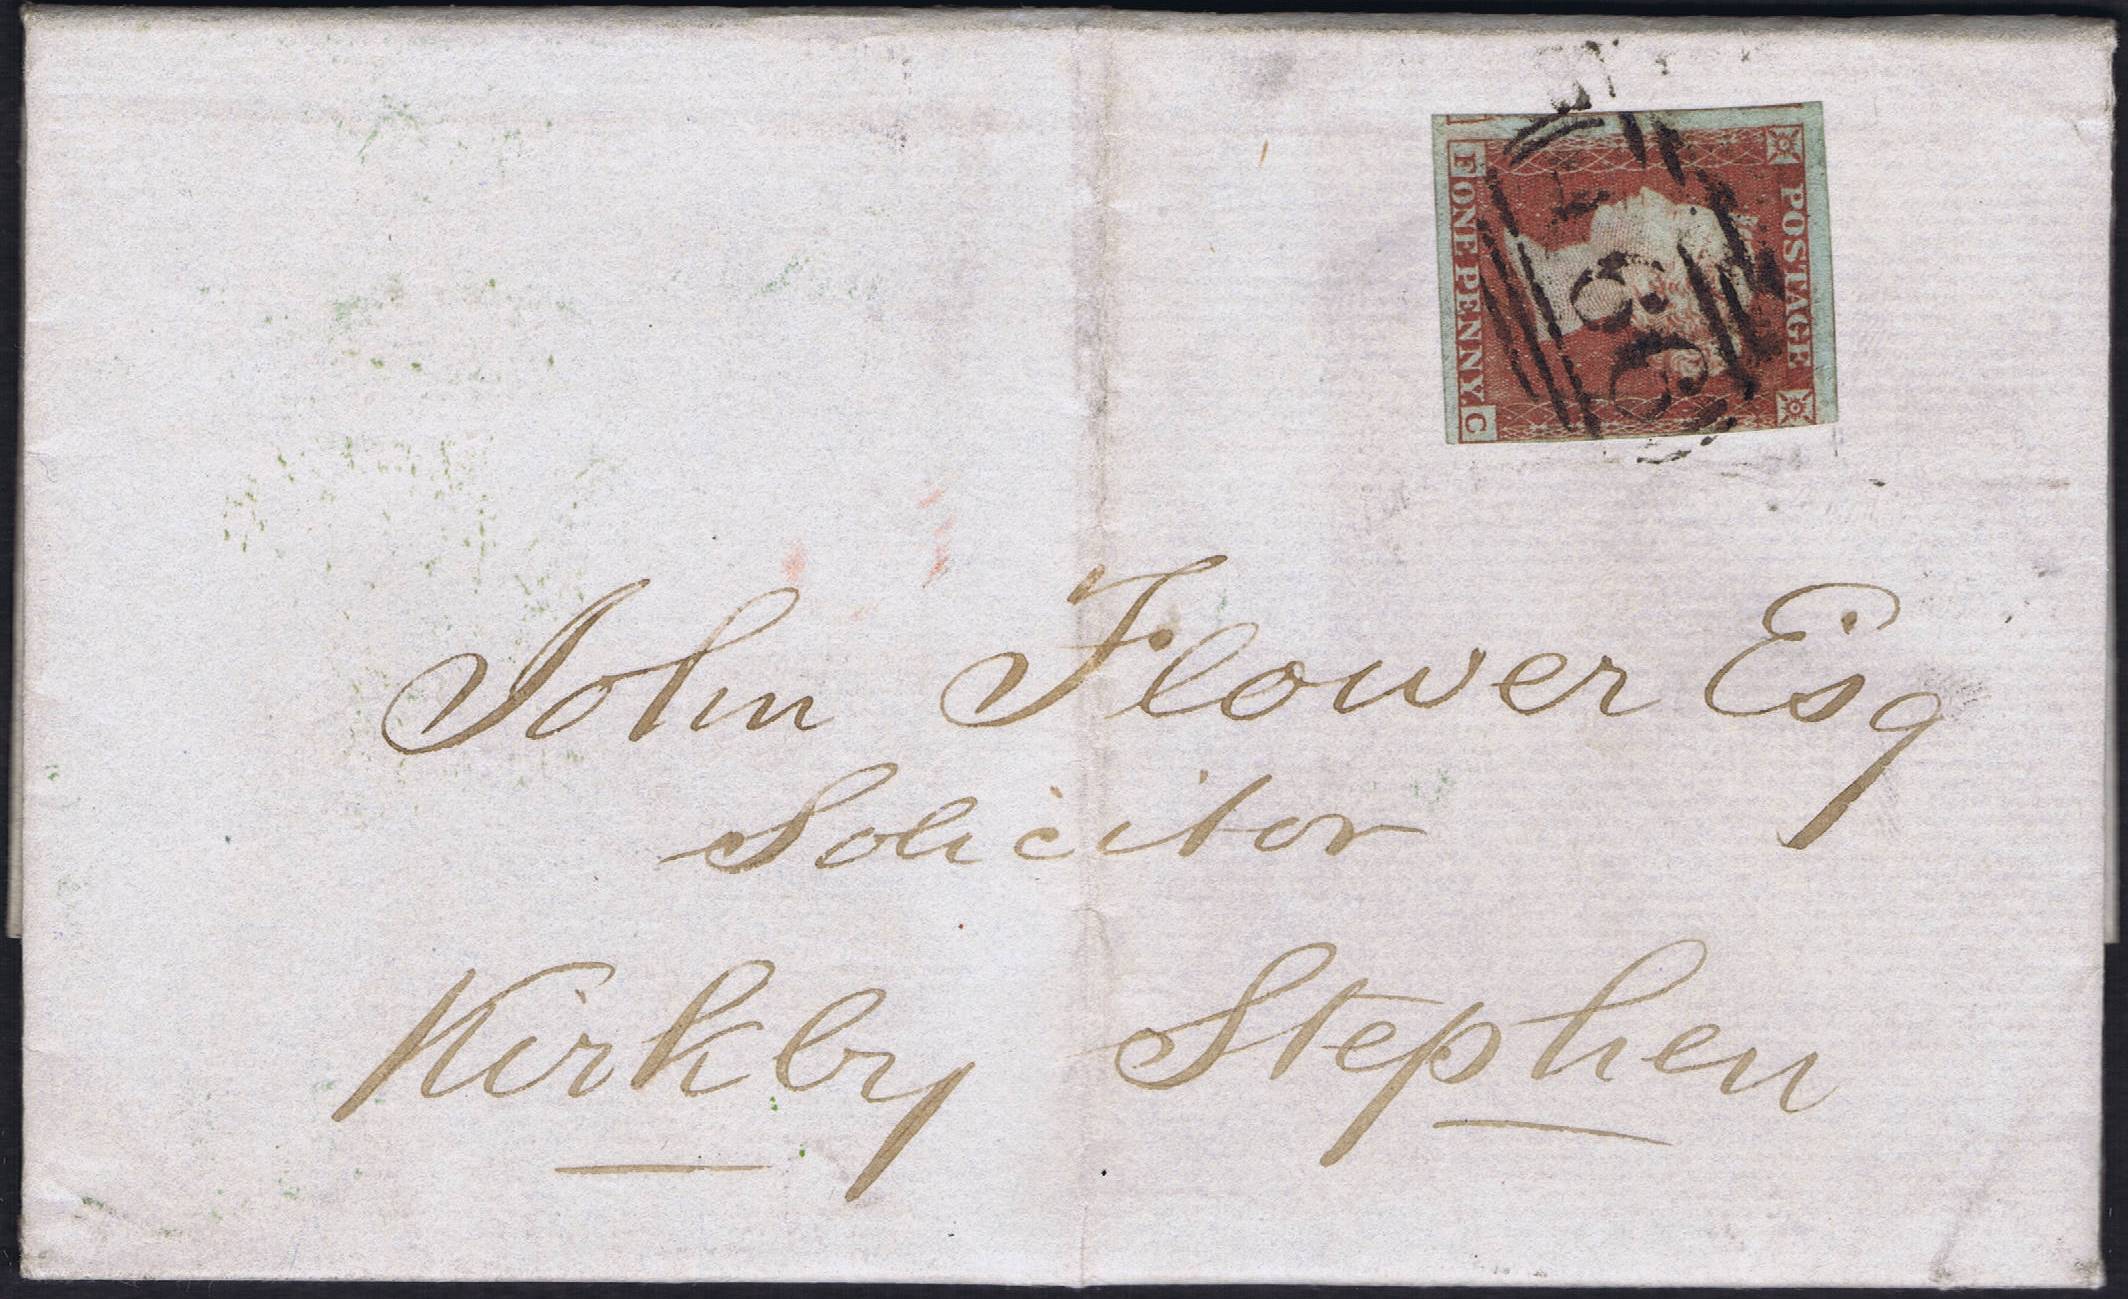 POSTAGE
F ONE PENNY. C
John Flower Esq
Solicitor
Kirkby Stephen